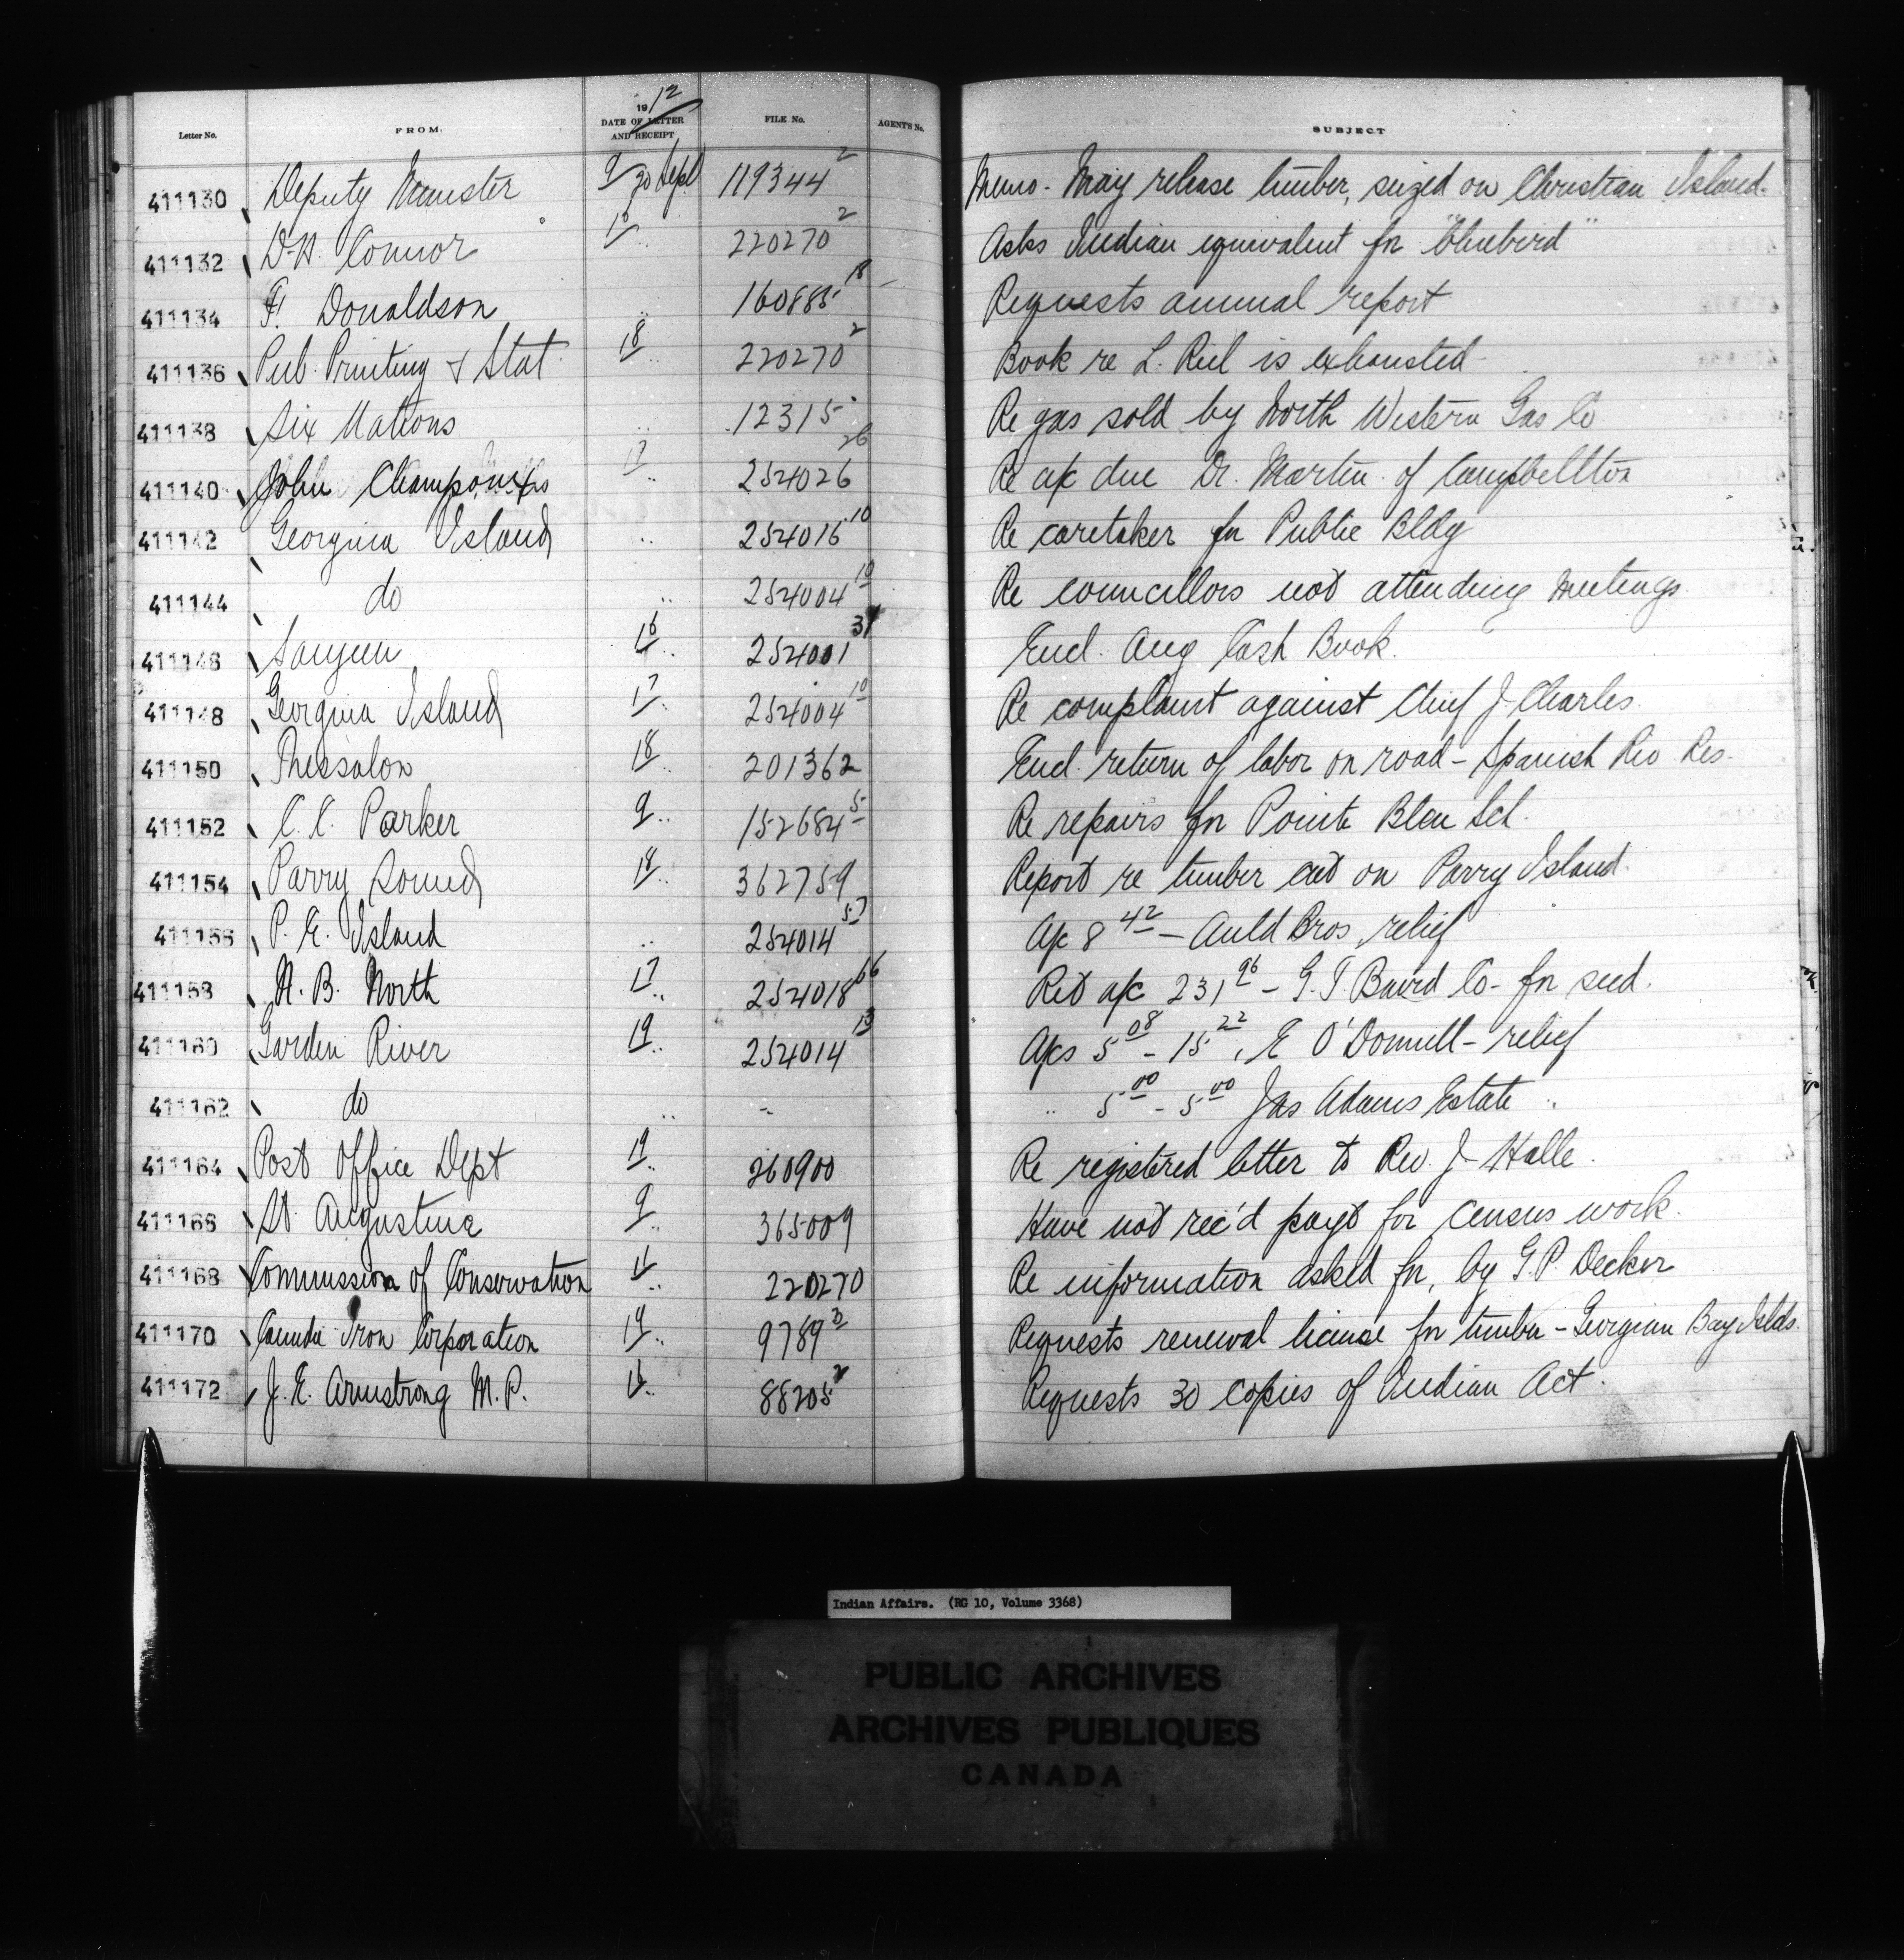 Letter No. FROM. 1912 DATE OF LETTER AND RECEIPT FILE No. AGENT'S No. SUBJECT
411130 Deputy Minister 9/20 Sept 119344² Memo - May release timber, seized on Christian Island.
411132 D.H. Connor " 220270² Asks Indian equivalent for "bluebird"
411134 F. Donaldson " 160885¹⁸ Requests annual report
411136 Pub. Printing & Stat. 18 " 220270² Book re L. Riel is exhausted -
411138 Six Nations " 12315 Re gas sold by North Western Gas Co
411140 John " 254026²⁶ Re a/c due Dr. Martin of Campbellton
411142 Georgina Island " 254016¹⁰ Re caretaker for Public Bldg
411144 do " 254004¹⁰ Re councillors not attending meetings.
411146 Saugeen 16 " 254001³¹ Encl. Aug Cash Book.
411148 Georgina Island 17 " 254004¹⁰ Re complaint against Chief J. Charles.
411150 Thessalon 18 " 201362 Encl. return of labor on road - Spanish Riv Res.
411152 C.C. Parker 9 " 152684⁵ Re repairs for Pointe Bleu Sch.
411154 Parry Sound 18 " 362759 Report re timber cut on Parry Island.
411156 P.E. Island " 254014⁵⁷ A/c 8⁴² - Auld Bros. relief
411158 N.B. North 17 " 254018⁶⁶ Ret a/c 231⁹⁶ - G.T. Baird Co - for seed.
411160 Garden River 19 " 254014¹³ A/cs 5⁰⁸ - 15²², E O'Donnell - relief
411162 do " " " 5⁰⁰ - 5⁰⁰ Jas Adams Estate "
411164 Post Office Dept 19 " 260900 Re registered letter to Rev. J. Halle.
411166 St. Augustine 9 " 365009 Have not rec'd payt for census work.
411168 Commission of Conservation " 220270 Re information asked for, by G.P. Decker
411170 Canada Iron Corporation 19 " 9789³ Requests renewal license for timber - Georgian Bay Islds.
411172 J.E. Armstrong M.P. " 88205² Requests 30 copies of Indian Act.
Indian Affairs. (RG 10, Volume 3368)
PUBLIC ARCHIVES
ARCHIVES PUBLIQUES
CANADA